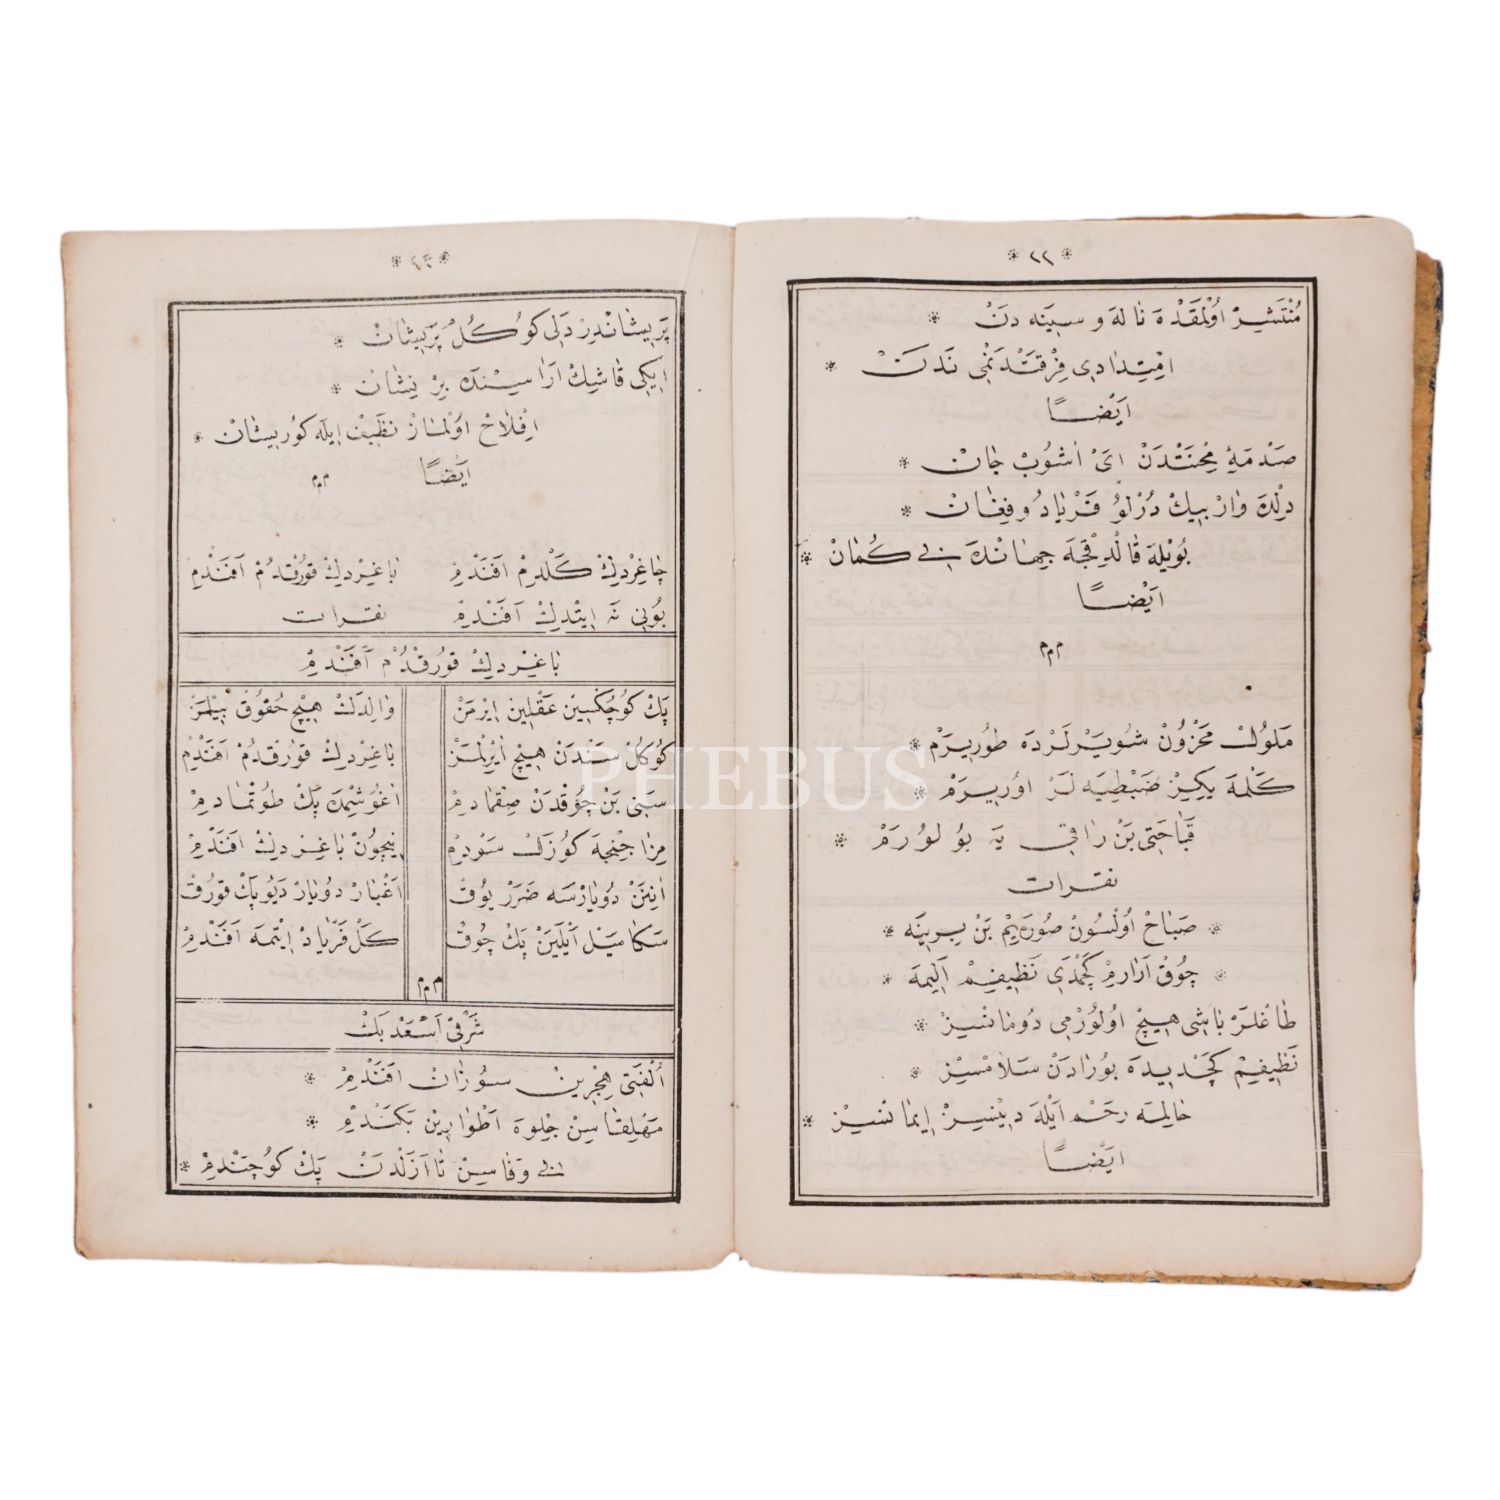 * ٢٢ *
مُنْتَشِرْ اُوْلْمَقْدَه نَالَه وَ سِينَه دَنْ *
اِمْتِدَادِى فِرْقَتَڭ نَدَنْ *
اَيْضًا
صَدْمَهٔ مِحْنَتْدَنْ اَىْ اَشُوبْ جَانْ *
دِلْدَه وَارْ بِيكْ دُرْلُو فَرْيَادُ وفِغَانْ *
بُويْلَه قَالْدِقْجَه جِهَانْدَه بِى كُمَانْ *
اَيْضًا
م م م
مَلُولْ مَحْزُونْ شُويَرْلَرْدَه طُورِيرَمْ *
كَلْمَه يَكِزْ ضَبْطِيَه لَرْ اُورِيرَمْ *
قَبَاحَتِى بَنْ رَاقِى يَه بُولُورَمْ *
نقرات
* صَبَاحْ اُولْسُونْ صُورَيِمْ بَنْ بِرِينَه *
* چُوقْ آرَارِمْ كَچْمَدِى نَظِيفِمْ اَلِيمَه *
طَاغْلَرْ بَاشِى هِيچْ اُولُورْمِى دُومَانْسِيزْ *
نَظِيفِمْ كَچْدِيدَه بُورَادَنْ سَلَامْسِيزْ *
حَالِمَه رَحْم اَيْلَه دِينْسِيزْ اِيمَانْسِيزْ *
اَيْضًا
* ٢٣ *
پَرِيشَانْدِرْ دَلِى كُوكُلْ پَرِيشَانْ *
اِيكِى قَاشِكْ اَرَاسِينْدَه بِرْ نِشَانْ *
اِفْلَاحْ اُولْمَازْ نَظِيفْ اِيلَه كُورِيشَانْ *
اَيْضًا م م م
چَاغِرْدِكْ كَلْدِمْ اَفَنْدِمْ بَاغِرْدِكْ قُورْقْدُمْ اَفَنْدِمْ
بُونِى نَه اِيتْدِكْ اَفَنْدِمْ نقرات
بَاغِرْدِكْ قُورْقْدُمْ اَفَنْدِمْ
پَكْ كُوچُكْسِينْ عَقْلِينْ اِيرْمَزْ وَالِدَكْ هِيچْ حُقُوقْ بِيلْمَزْ
كُوكُلْ سَنْدَنْ هِيچْ اَيْرِلْمَزْ بَاغِرْدِكْ قُورْقْدُمْ اَفَنْدِمْ
سَنِى بَنْ چُوقْدَنْ صِقْمَادِمْ اَغُوشِمَه پَكْ طُوتْمَادِمْ
مِزَاجِنْجَه كُوزَلْ سَوْدِمْ نِيچُونْ بَاغِرْدِكْ اَفَنْدِمْ
اَنَنْ دُويَارْسَه ضَرَرْ يُوقْ اَغْيَارْ دُويَارْ دَيُو پَكْ قُورْقْ
سَكَا مَيْل اَيْلَيَنْ پَكْ چُوقْ كَلْ فَرْيَادْ اِيتْمَه اَفَنْدِمْ
م م م
شَرْقِى اَسْعَدْ بَكْ
اُلْفَتِى هِجْرِينْ سُوزَانْ اَفَنْدِمْ *
مَهْلِقَاسِنْ جِلْوَه اَطْوَارِينْ بَكَنْدِمْ *
بِى وَفَاسِنْ تَا اَزَلْدَنْ پَكْ كُوچَنْدِمْ *